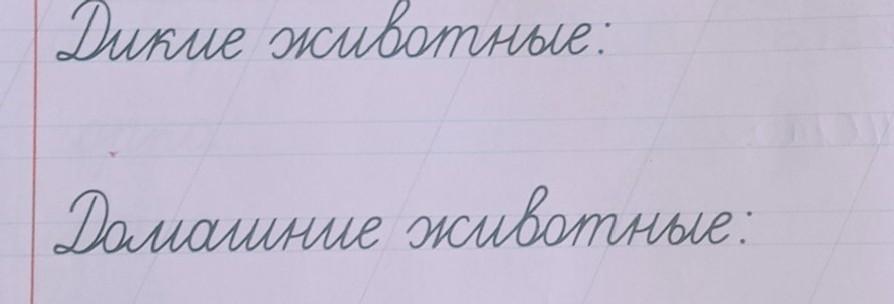 Дикие животные:
Домашние животные: